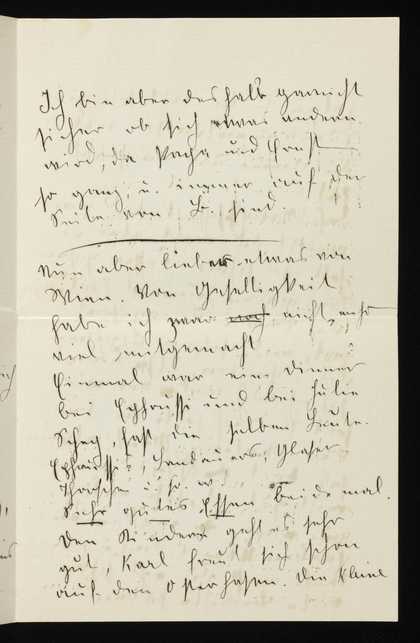 Ich bin aber deshalb garnicht
sicher ob sich etwas ändern
wird, da Papa und Ernst
so ganz u. immer auf der
Seite von L. sind.
Nun aber lieber etwas von
Wien. Von Geselligkeit
habe ich zwar nicht mehr
viel mitgemacht
Einmal war ein Dinner
bei Ephrussi und bei Julie
Schey, fast die selben Leute.
Ephrussi's, Landauers, Glaser
u. s. w.
Sehr gutes Essen beide mal.
Den Kindern geht es sehr
gut, Karl freut sich schon
auf den Osterhasen. Die kleine